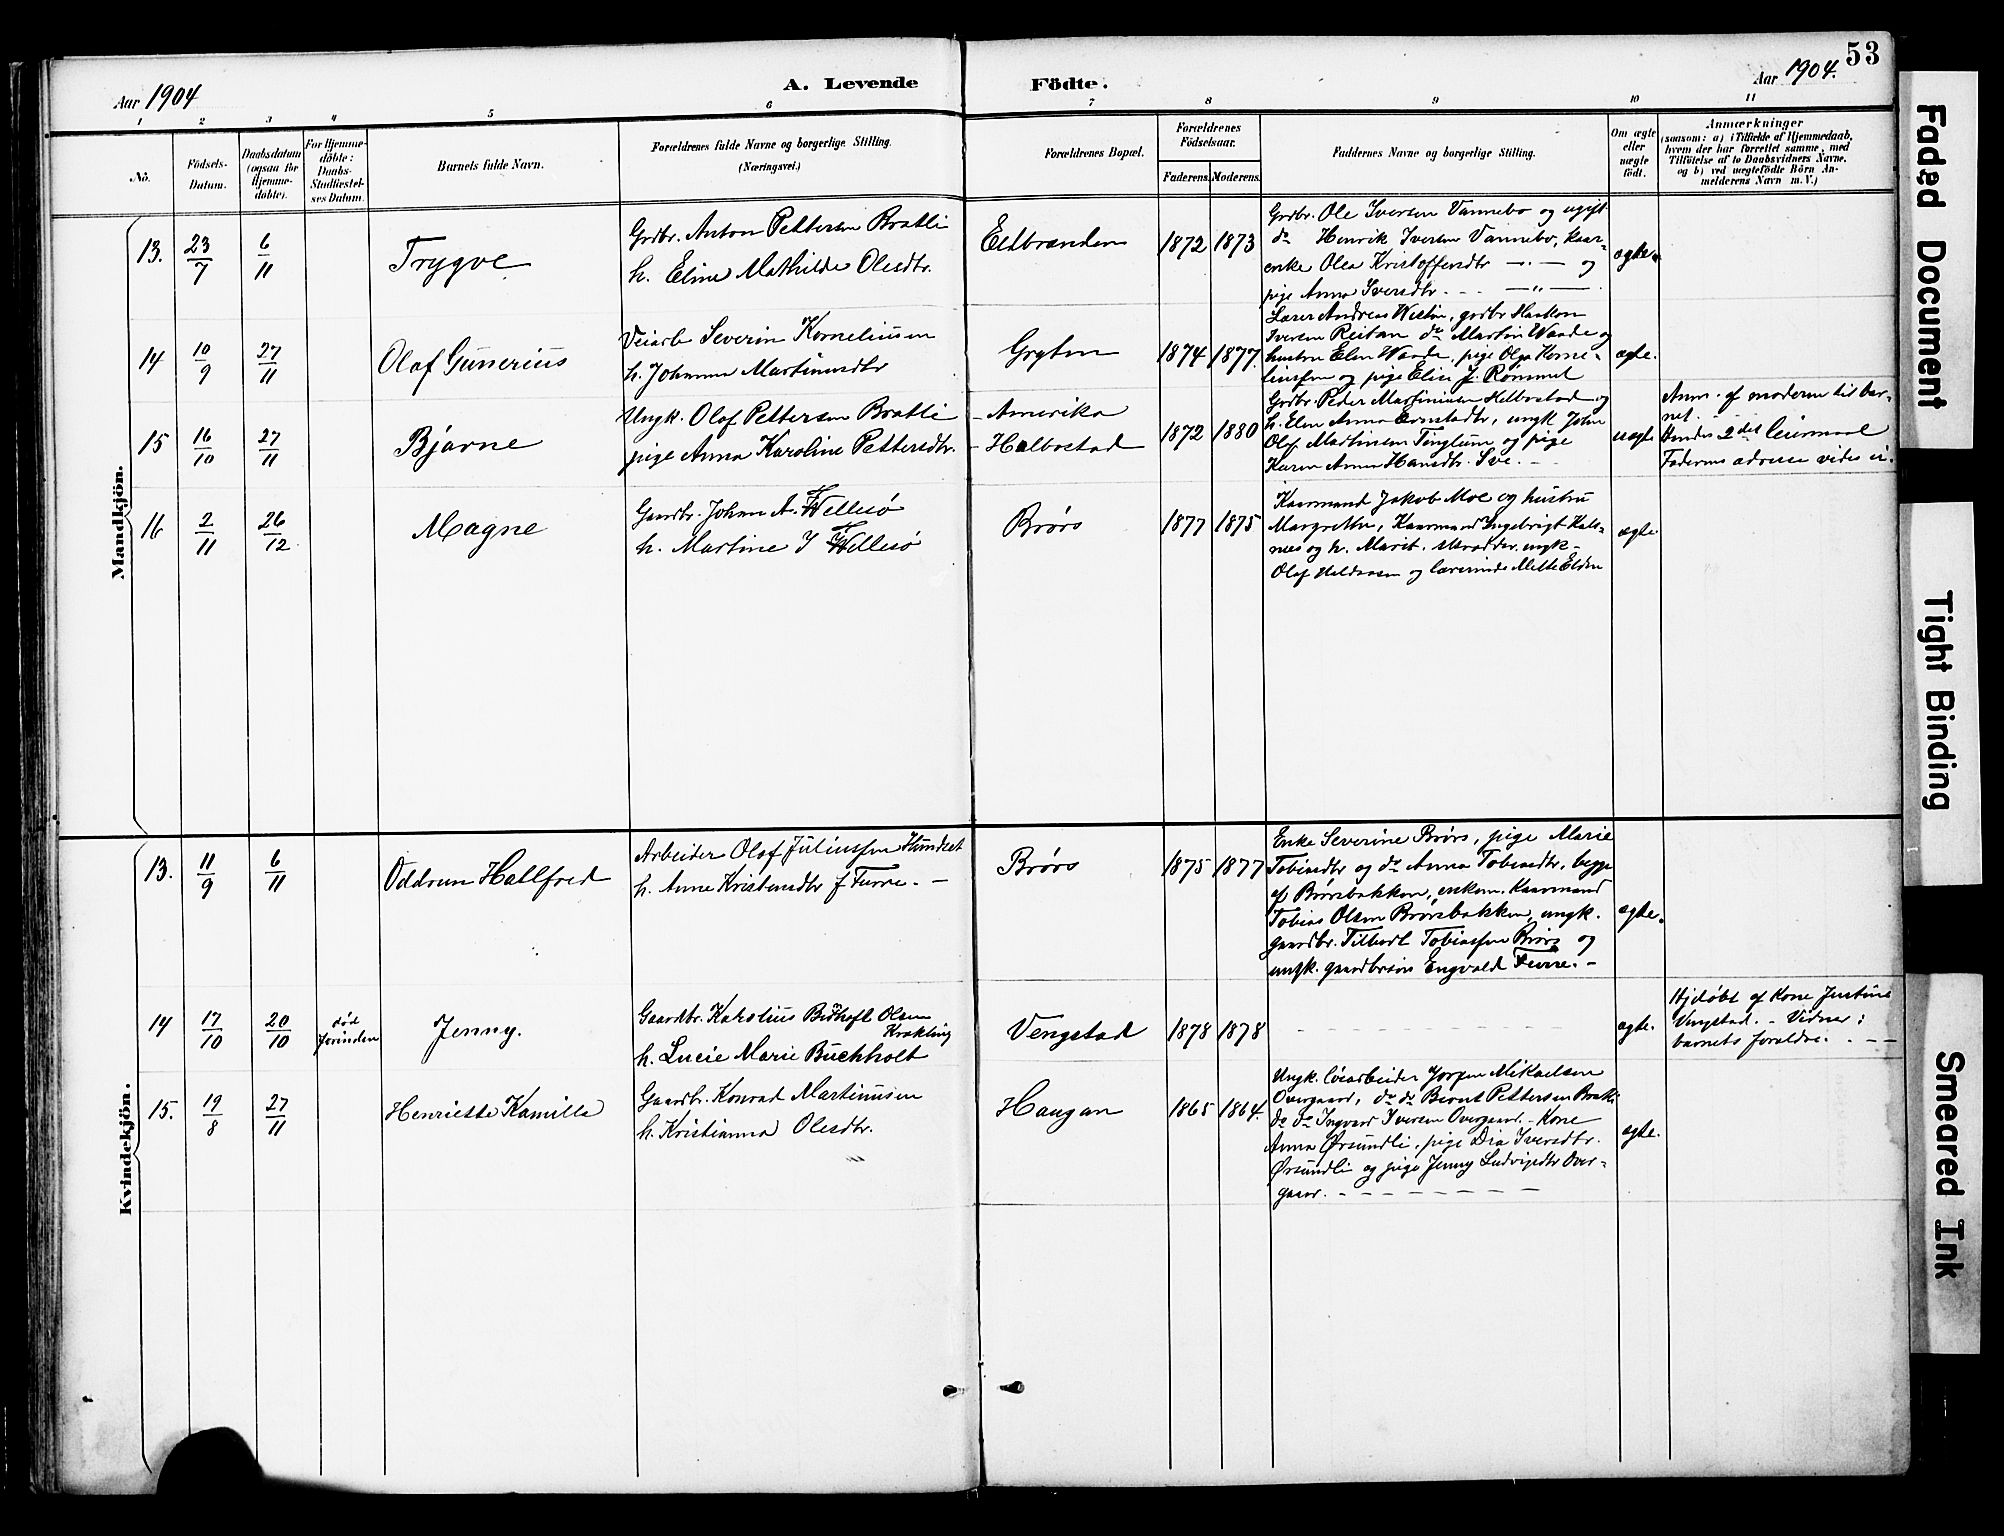 53
Aar 1904
A. Levende
Födte.
Aar 1904.
1 2 3 4 5 6 7 8 9 10 11
No.
Födsels-
Datum.
Daabsdatum
(ogsaa for
Hjemme-
döbte).
For Hjemme-
döbte:
Daabs-
Stadfæstel-
ses Datum.
Barnets fulde Navn.
Forældrenes fulde Navne og borgerlige Stilling.
(Næringsvei.)
Forældrenes Bopæl.
Forældrenes
Födselsaar.
Faderens. Moderens.
Faddernes Navne og borgerlige Stilling.
Om ægte
eller
uægte
födt.
Anmærkninger
(saasom: a) i Tilfælde af Hjemmedaab,
hvem der har forrettet samme, med
Tilföielse af to Daabsvidners Navne,
og b) ved uægtefödte Börn An-
melderens Navn m. V.)
Mandkjön.
13. 23/7 6/11 Trygve
Grdbr. Anton Pettersen Bratli
h. Eline Mathilde Olesdtr.
Eldbranden 1872 1873
Grdbr. Ole Iversen Vannebo og ugift
do Henrik Iversen Vannebo, kaar-
enke Olea Kristoffersdtr —"— og
pige Anna Iversdtr. — —"—
ægte.
14 10/9 27/11 Olaf Gunerius
Veiarb Severin Korneliusen
h. Johanna Martinusdtr
1874 1877.
Lærer Andreas Wiktn, grdbr Haakon
Iversen Reitan do Martin Waade og
hustru Elen Waade, pige Olga Korne-
liusfen og pige Elise J. Rømmet
ægte.
15 16/10 27/11 Bjarne
Ungk. Olaf Pettersen Bratli
pige Anna Karoline Pettersdtr.
- Amerika
- Halbostad
1872 1880
Grdbr. Peder Martiniusen Helbostad og
h. Elen Anna Arntsdtr, ungk John
Olaf Martinsen Tinglum og pige
Karen Anna Hansdtr. Sve. -
uægte
Anm. af moderen til bar-
net.
Hendes 2det leiermaal
Faderens adresse vides ei.
16 2/11 26/12 Magne
Gaardbr. Johan A.
h. Martine J
Brørs 1877 1875
Kaarmand Jakob Moe og hustru
Margrethe, Kaarmand Ingebrigt Kals-
nes og h. Marit. skrædder ungk-
Olaf og lærerinde Mette Elden
ægte
Kvindekjön.
13. 11/9 6/11 Oddrun Hallfred
Arbeider Olaf Juliusfen Hundset
h. Anne Kristensdtr f Furre. -
Brørs 1875 1877
Enke Severine Brørs, pige Marie
Tobiasdtr og do Anna Tobiasdtr, begge
af Brørsbakken, enkem. Kaarmand
Tobias Olsen Brørsbakken, ungk.
gaardbr. Tobiasfen Brørs og
ungk. gaardbrsøn Engvald Furre. -
ægte.
14 17/10 20/10 død
forinden
Jenny.
Gaardbr. Karolius Olsen
Krakling
h. Lucie Marie Buchholt
Vengstad 1878 1878
ægte.
Hjdøbt af Kone Justine
Vengstad. - Vidner:
barnets forældre. - - -
15. 19/8 27/11 Henriette Kamilla
Gaardbr. Konrad Martinusen
h. Kristianna Olesdtr.
Haugan 1865 1864.
Ungk. Jørgen Mikaelsen
Overgaard, do do Bernt Pettersen Bratli
do do Ingvard Iversen Overgaard. - Kone
Anna Ørsundli, pige Dra Iversdtr.
Ørsundli og pige Jenny Ludvigsdtr Over-
gaard. - - - - - - - -
ægte.
Faded Document
Tight Binding
Smeared Ink